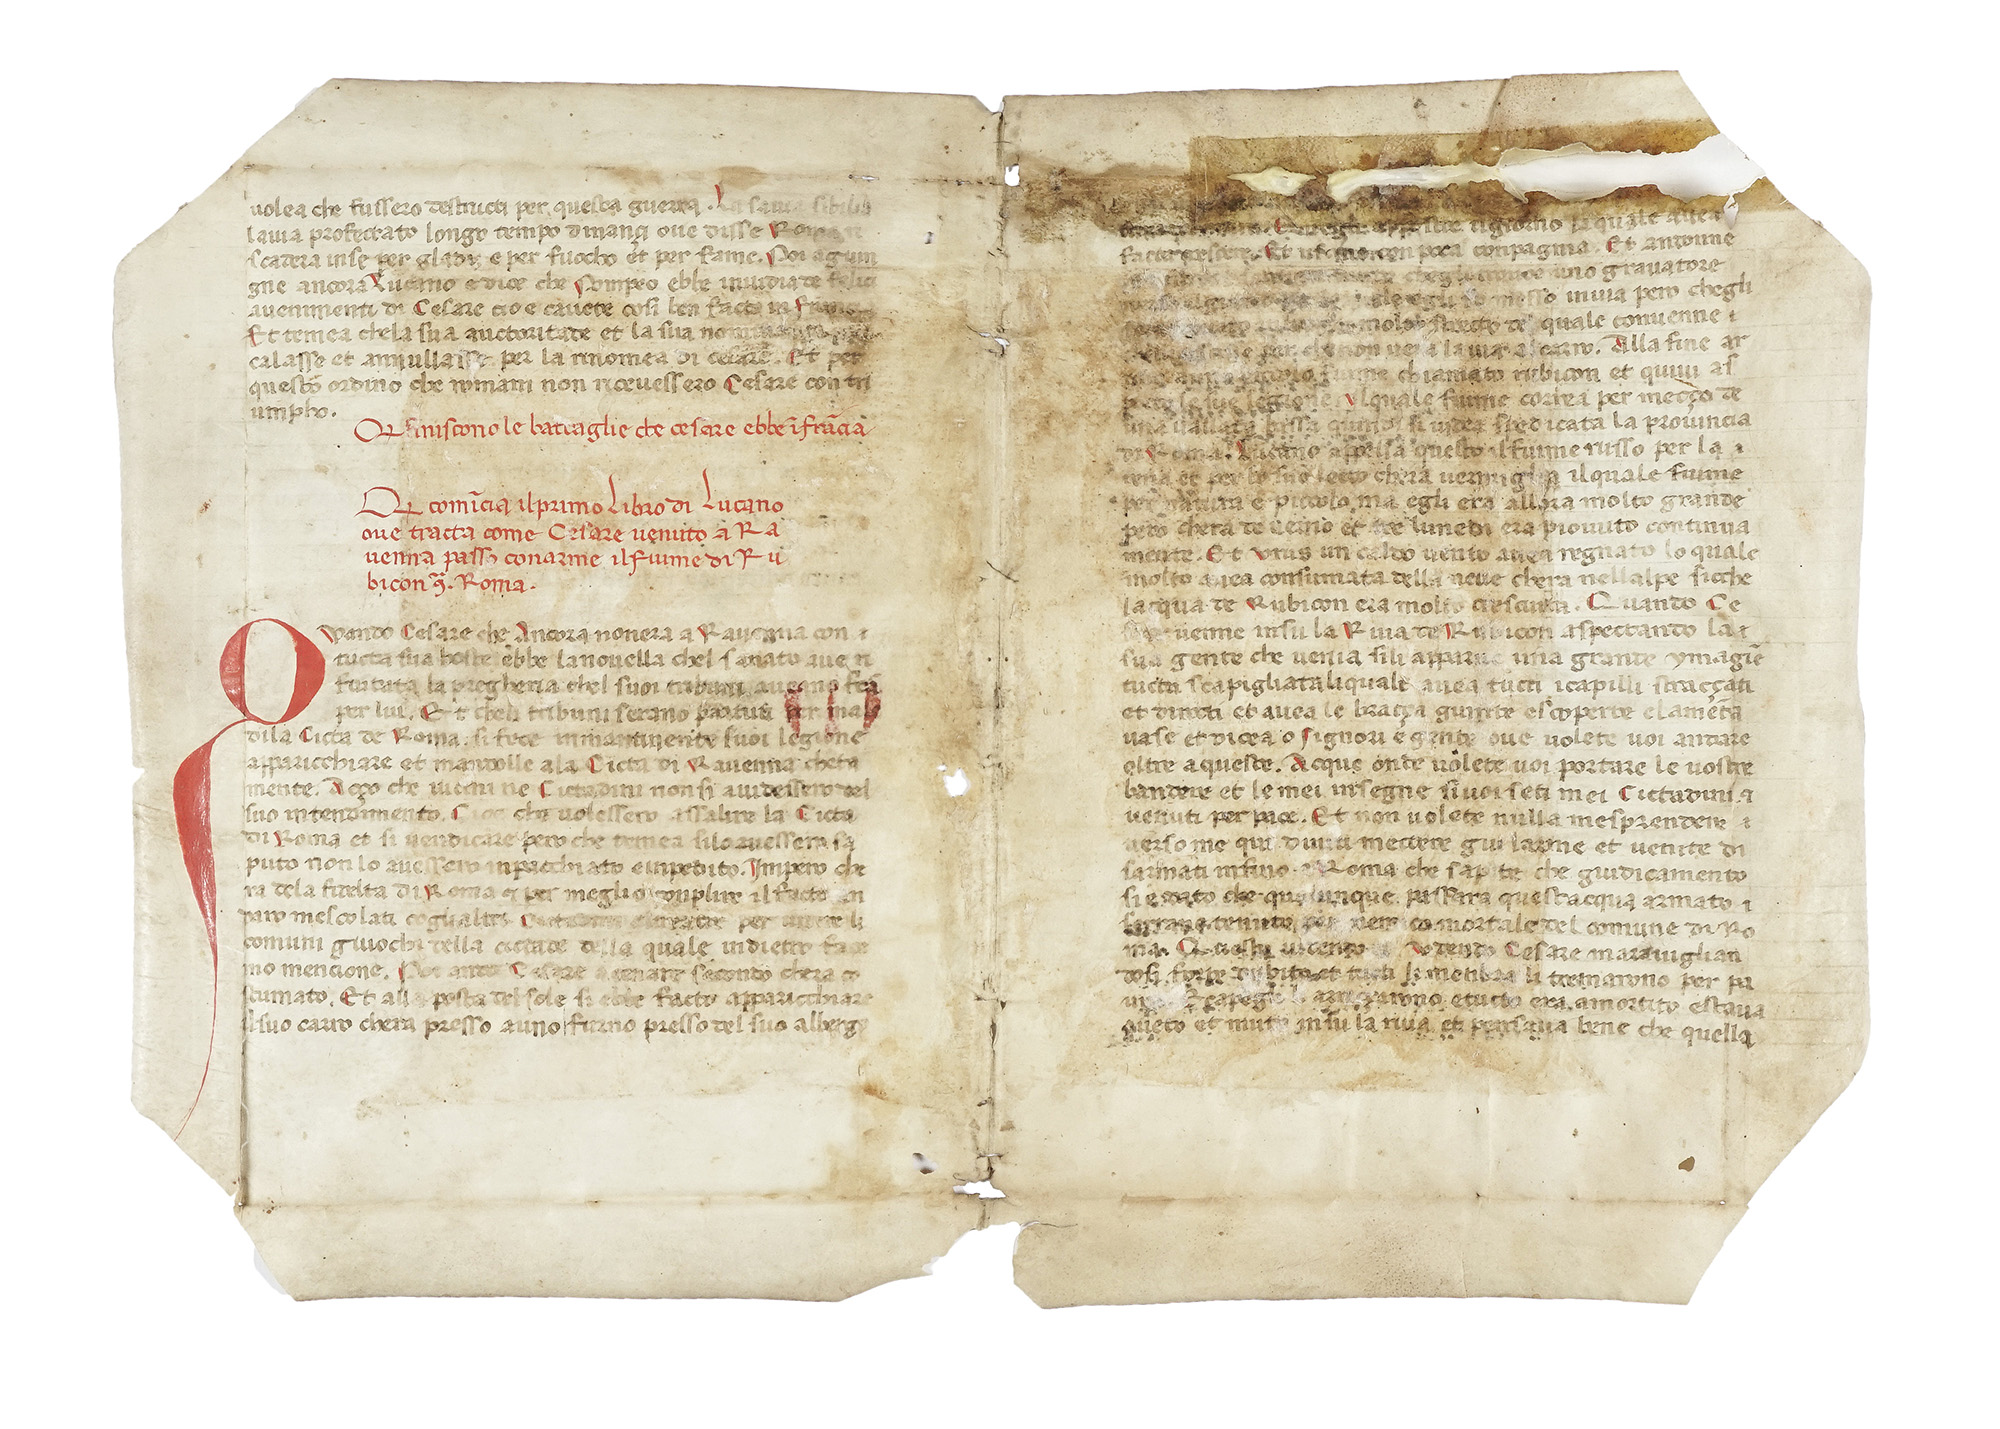 uolea che fussero destructi per questa guerra . La sauia sibilia
lauia profetato longo tempo dinanzi oue disse Roma
scadera inse per gladii e per fuocho et per fame. Poi agiun
gne ancora Lucano e dice che Pompeo ebbe inuidia de felici
auenimenti di Cesare cio e cauere cosi ben facto in francia
Et temea chela sua auctoritade et la sua nominanza
calasse et annullasse per la rinomea di cesare. Et per
questo ordino che romani non riceuessero Cesare con tri
umpho.
Qr finiscono le battaglie che cesare ebbe ī frācia
Qr comīcia il primo Libro di Lucano
oue tracta come Cesare uenuto a Ra
uenna passo conarme il fiume di Ru
bicon . Roma.
Quando Cesare che Ancora nonera a Rauenna con
tucta sua hoste ebbe lanouella chel sanato aue
fiutata la pregheria chel suoi tribuni aueano
per lui. Et cheli tribuni serano partuti per mal
dila Citta de Roma. si fece inmantinente suoi legione
apparicchiare et mandolle ala Citta di Rauenna cheta
mente. Aço che uicini ne Cittadini non si auidessero del
suo intendimento. Cioe che uolessero assalire la Citta
di Roma et si uendicare pero che temea silo auessero sa
puto non lo auessero inpacchiato empedito. Impero che
ra dela fidelta di Roma per meglio conplire il facto
paro mescolati coglialtri per uedere li
comuni giuochi della cittade della quale indietro face
mo mencione. Poi ando Cesare a cenare secondo chera co
stumato. Et alla posta del sole si ebbe facto apparicchiare
il suo carro chera presso auno furno presso del suo albergo
la quale auea
facto crescere. Et con poca conpagnia. Et antonne
chegli trouo uno grauatore
egli so messo in uia pero chegli
molto strecto del quale conuenne
che non uera la uia al carro. Alla fine ar
fiume chiamato rubicon et quiui as
pecto le sue legione. Il quale fiume correa per meçço de
una uallata bassa quindi si uidea spedicata la prouincia
di Roma. Lucano appella questo il fiume russo per la
rena et per lo suo lecto chera uermiglia il quale fiume
per natura e piccolo, ma egli era allora molto grande
pero chera de uerno et tre lunedi era piouuto continua
mente. Et Urus un caldo uento auea regnato lo quale
molto auea consumata della neue chera nellalpe sicche
lacqua de Rubicon era molto cresciuta. Quando Ce
sare uenne insu la Riua de Rubicon aspectando la
sua gente che uenia sili apparue una grande ymagīe
tucta scapigliata liquale auea tucti icapilli stracçati
et directi et auea le braccia gninte escoperte elamēta
uase et dicea o signori e gente oue uolete uoi andare
oltre aqueste. Acque onde uolete uoi portare le uostre
bandere et le mei insegne si uoi seti mei Cittadini
uenuti per pace. Et non uolete nulla mesprendere
uerso me qui diuu mectere giu larme et uenite di
sarmati infino a Roma che sapite che giudicamento
si e dato che qualunque passera questacqua armato
serrane tenuto per nemico mortale del comune di Ro
ma. Questi uicendo et udendo Cesare marauiglian
dosi forte dubito et tucti li menbra li tremarono per pa
ura. E capegli li arriçarono, etucto era amortito estaua
queto et muto insu la riua et pensaua bene che quella